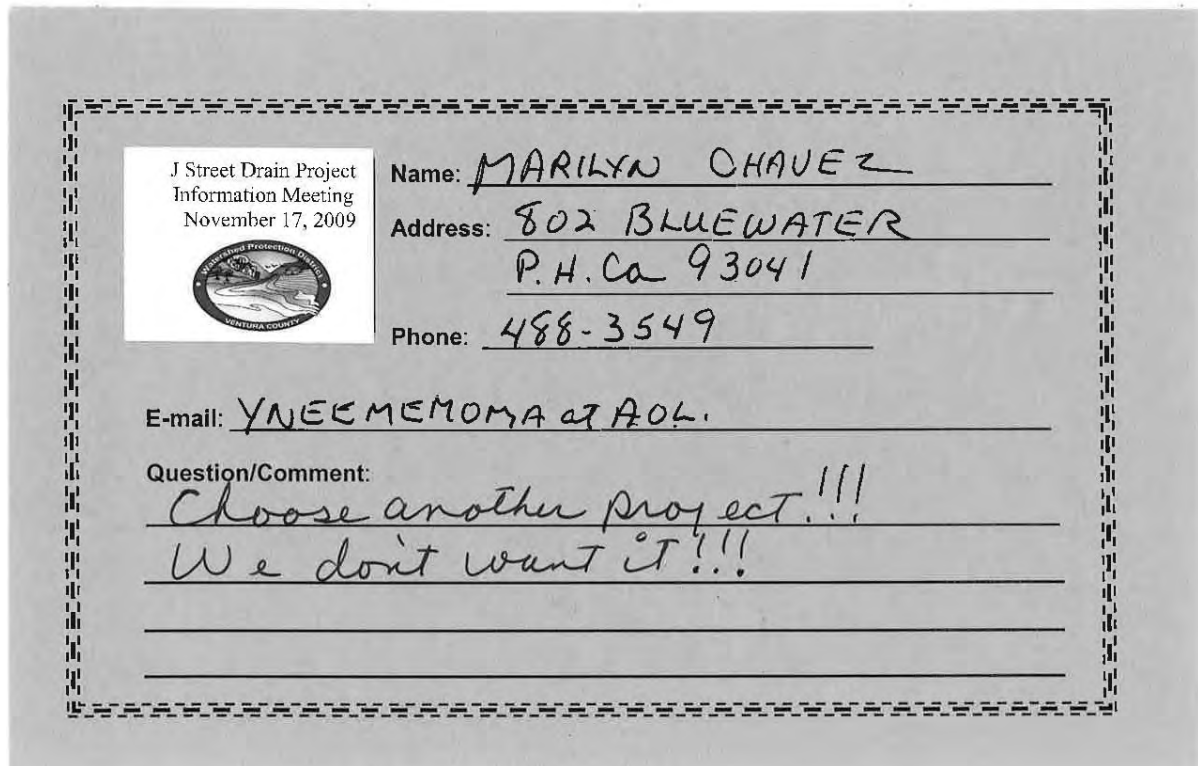 J Street Drain Project
Information Meeting
November 17, 2009
Watershed Protection District
VENTURA COUNTY
Name: MARILYN CHAVEZ
Address: 802 BLUEWATER
P.H. Ca 93041
Phone: 488-3549
E-mail: YNEEMEMOMA at AOL.
Question/Comment:
Choose another project!!!
We don't want it!!!